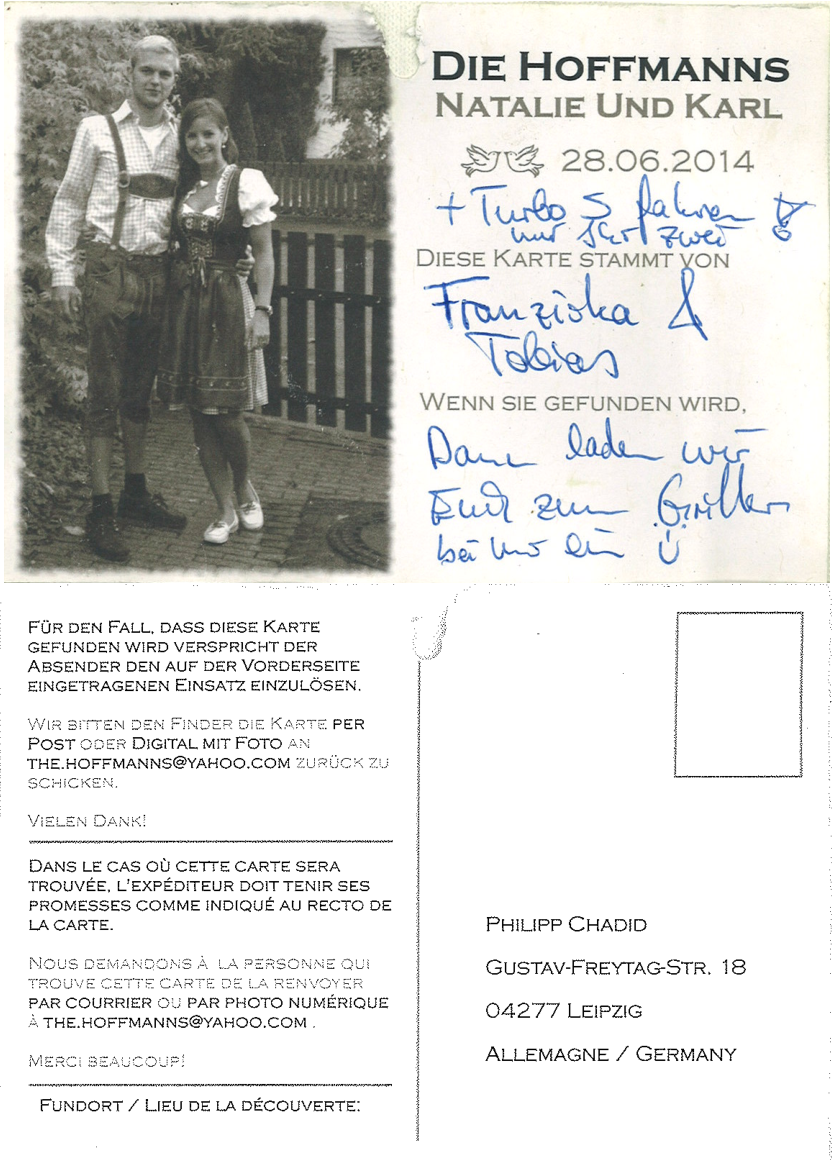 DIE HOFFMANNS
NATALIE UND KARL
28.06.2014
+ Turbo S fahren
nur Ihr zwei
DIESE KARTE STAMMT VON
Franziska &
Tobias
WENN SIE GEFUNDEN WIRD,
Dann laden wir
Euch zum Grillen
bei uns ein Ü
FÜR DEN FALL, DASS DIESE KARTE
GEFUNDEN WIRD VERSPRICHT DER
ABSENDER DEN AUF DER VORDERSEITE
EINGETRAGENEN EINSATZ EINZULÖSEN.
WIR BITTEN DEN FINDER DIE KARTE PER
POST ODER DIGITAL MIT FOTO AN
THE.HOFFMANNS@YAHOO.COM ZURÜCK ZU
SCHICKEN.
VIELEN DANK!
DANS LE CAS OÙ CETTE CARTE SERA
TROUVÉE, L'EXPÉDITEUR DOIT TENIR SES
PROMESSES COMME INDIQUÉ AU RECTO DE
LA CARTE.
NOUS DEMANDONS À LA PERSONNE QUI
TROUVE CETTE CARTE DE LA RENVOYER
PAR COURRIER OU PAR PHOTO NUMÉRIQUE
À THE.HOFFMANNS@YAHOO.COM .
MERCI BEAUCOUP!
FUNDORT / LIEU DE LA DÉCOUVERTE:
PHILIPP CHADID
GUSTAV-FREYTAG-STR. 18
04277 LEIPZIG
ALLEMAGNE / GERMANY